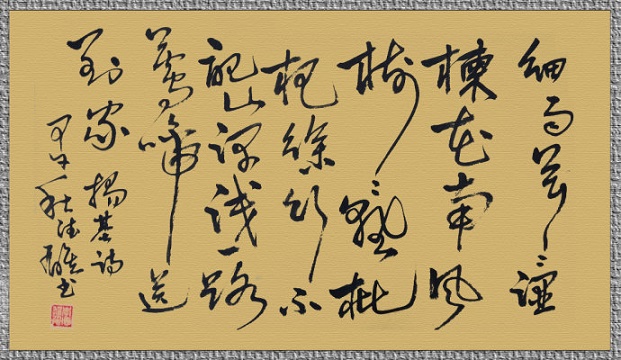 细雨茸々湿
楝花南风
树々熟枇
杷徐行不
记山深浅一路
莺啼送
到家 杨基诗
秋 书